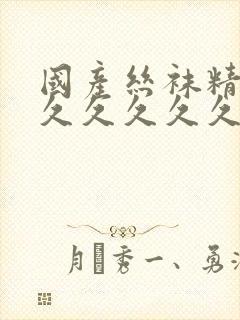 國產絲袜精
久久久久久
月秀一、勇